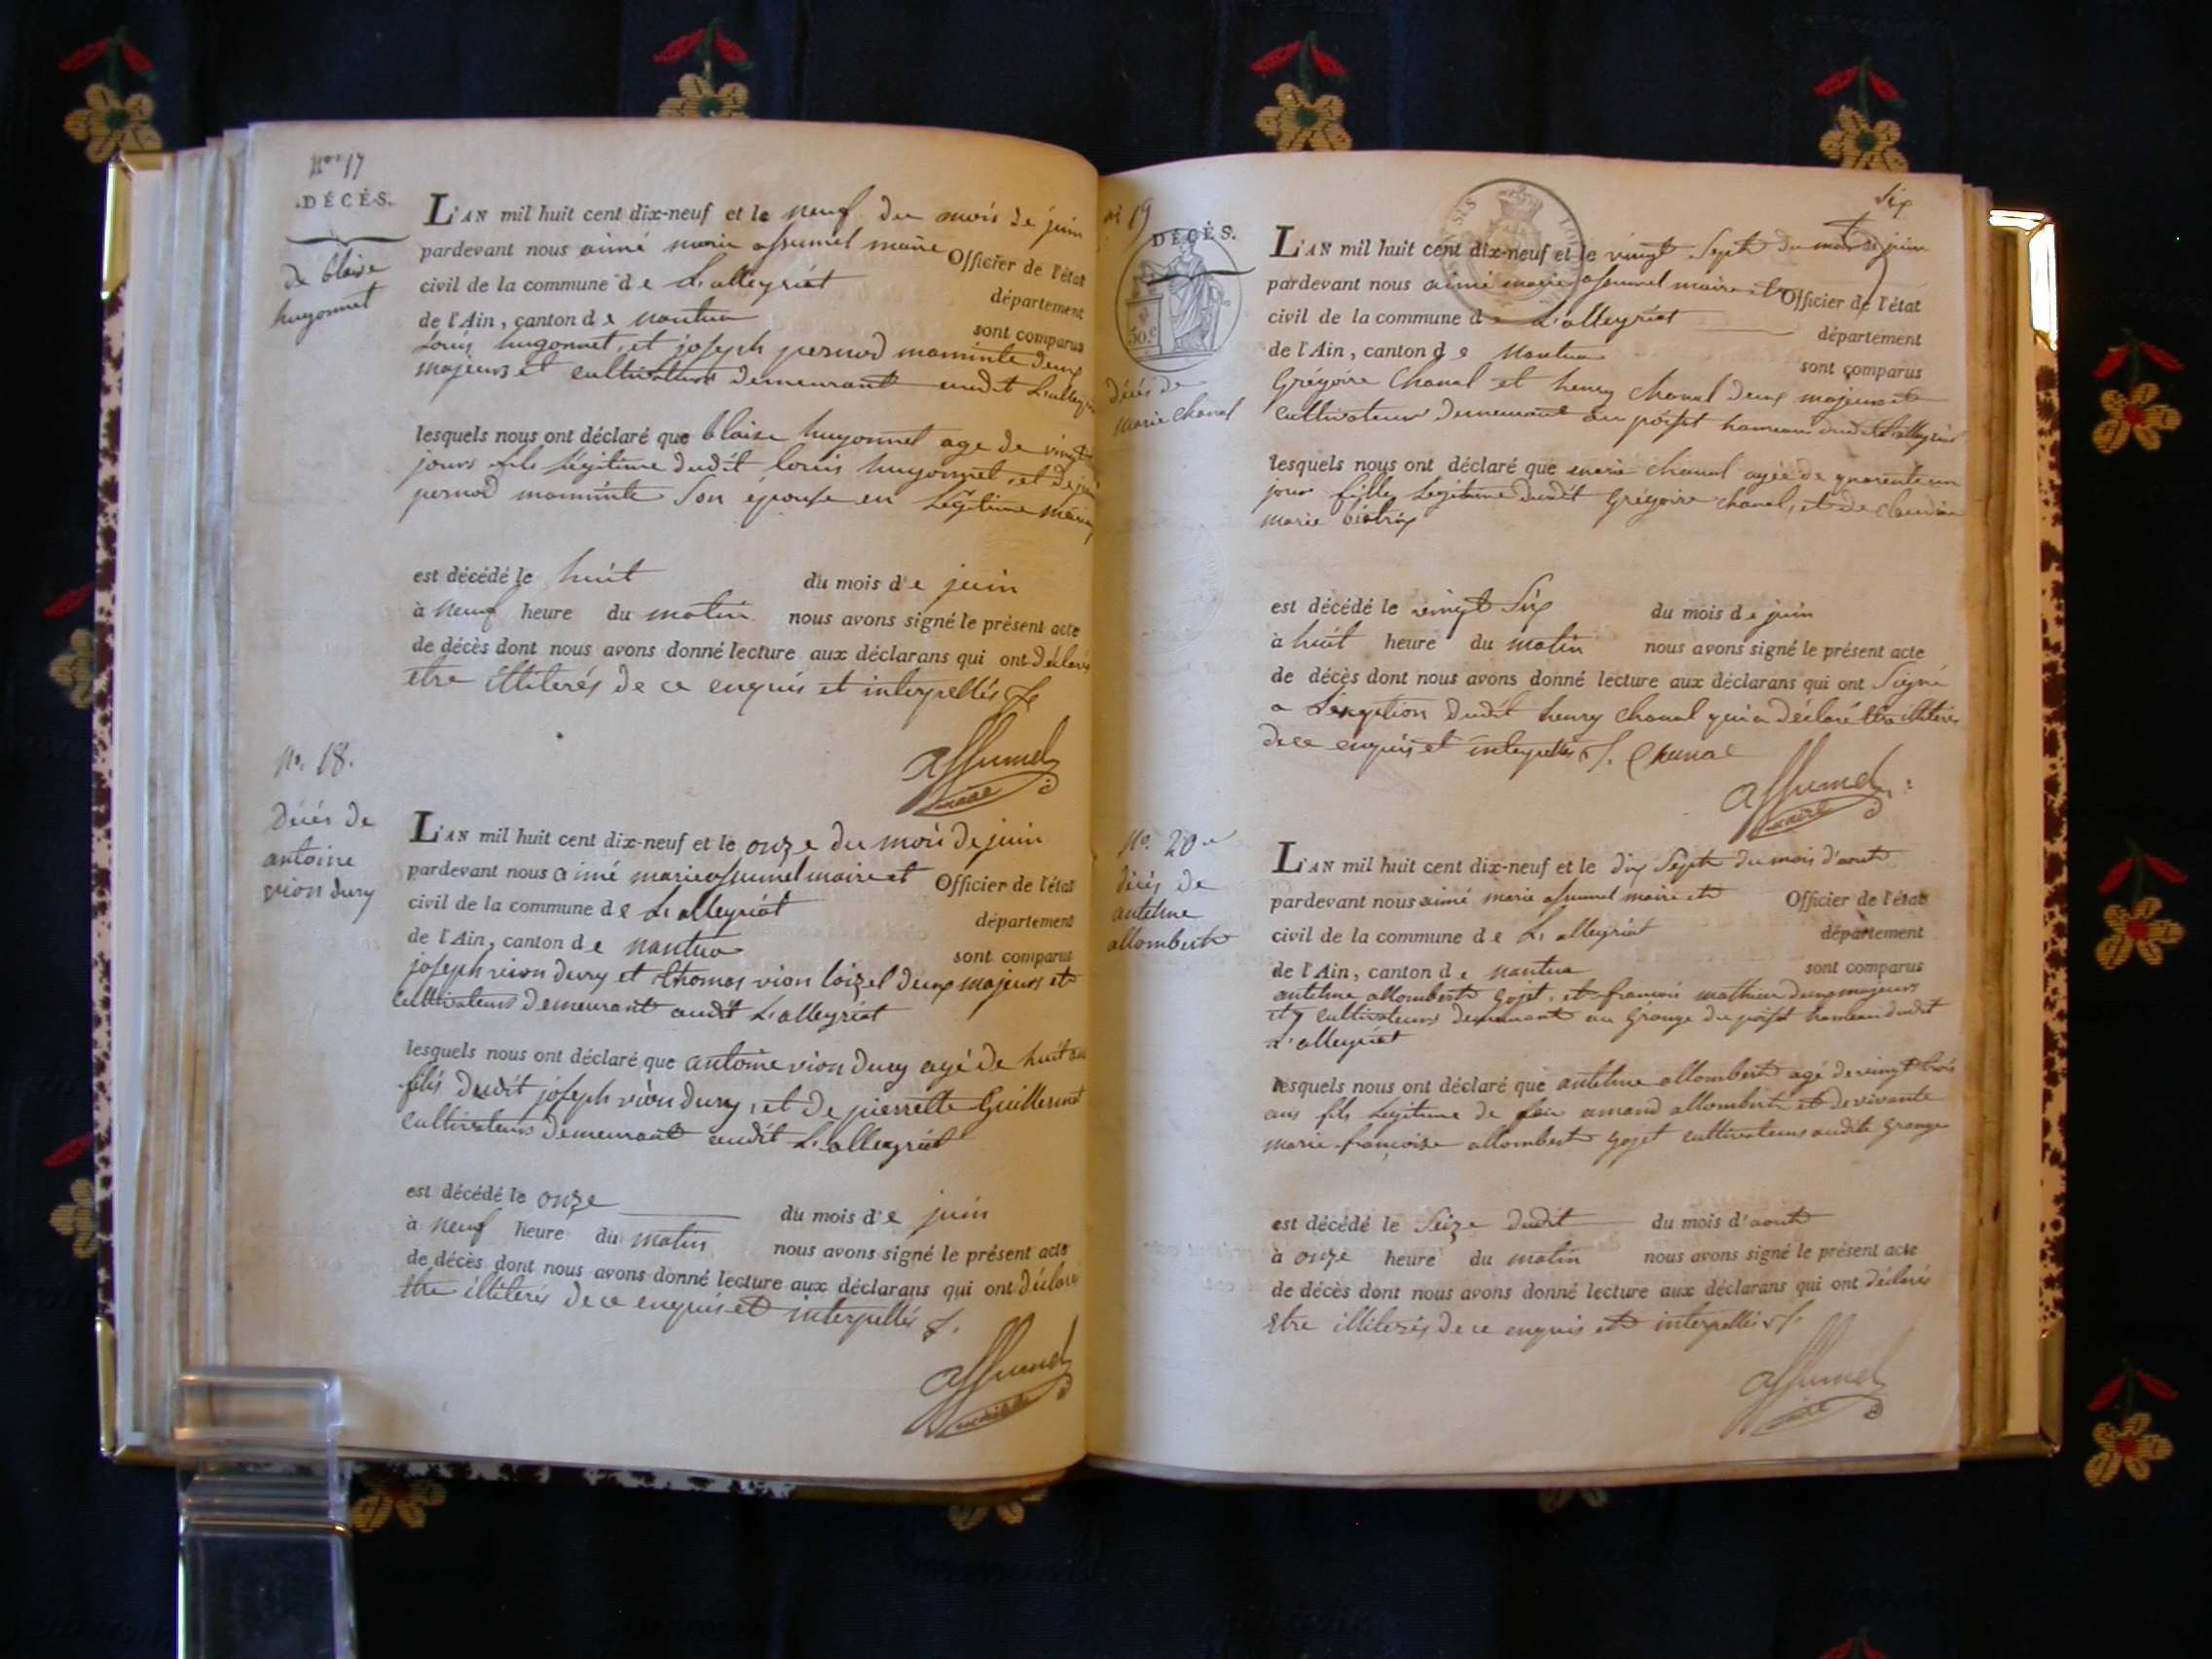 No. 17
DÉCÈS.
de blaise
hugonnet
L'AN mil huit cent dix-neuf et le neuf du mois de juin
pardevant nous aimé marie assumel maire Officier de l'état
civil de la commune de L'alleyriat département
de l'Ain, canton de nantua sont comparus
Louis hugonnet, et joseph pernod maminte deux
majeurs et cultivateurs demeurant audit L'alleyriat
lesquels nous ont déclaré que blaise hugonnet age de vingt
jours fils légitime dudit louis hugonnet, et de
pernod maminte Son épouse en Légitime
est décédé le huit du mois de juin
à neuf heure du matin nous avons signé le présent acte
de décès dont nous avons donné lecture aux déclarans qui ont déclaré
etre illiterés de ce enquis et interpellés
assumel
maire
No. 18.
décés de
antoine
vion dury
L'AN mil huit cent dix-neuf et le onze du mois de juin
pardevant nous aimé marie assumel maire et Officier de l'état
civil de la commune de L'alleyriat département
de l'Ain, canton de nantua sont comparus
joseph vion dury et thomas vion loizel deux majeurs et
cultivateurs demeurant audit L'alleyriat
lesquels nous ont déclaré que antoine vion dury agé de huit ans
fils dudit joseph vion dury, et de pierrette Guillermet
cultivateurs demeurant audit L'alleyriat
est décédé le onze du mois de juin
à neuf heure du matin nous avons signé le présent acte
de décès dont nous avons donné lecture aux déclarans qui ont déclaré
etre illiterés de ce enquis et interpellés
assumel
maire
Six
no 19
DÉCÈS.
50.c
décés de
marie chanal
L'AN mil huit cent dix-neuf et le vingt Sept du mois de juin
pardevant nous aimé marie assumel maire et Officier de l'état
civil de la commune de L'alleyriat département
de l'Ain, canton de Nantua sont comparus
Grégoire Chanal et henry chanal deux majeurs et
cultivateurs demeurant au poisat hameau dudit L'alleyriat
lesquels nous ont déclaré que marie chanal agée de quarente un
jour fille Légitime dudit Grégoire chanal, et de claudine
marie béatrix
est décédé le vingt Six du mois de juin
à huit heure du matin nous avons signé le présent acte
de décès dont nous avons donné lecture aux déclarans qui ont Signé
a L'exception dudit henry chanal qui a déclaré être illiteré
de ce enquis et interpellés Chanal
assumel
maire
No. 20
décés de
antelme
allombert
L'AN mil huit cent dix-neuf et le dix Sept du mois d'aout
pardevant nous aimé marie assumel maire et Officier de l'état
civil de la commune de L'alleyriat département
de l'Ain, canton de nantua sont comparus
antelme allombert gojet, et francois mathieu deux majeurs
et cultivateurs demeurant au Grange du poisat hameau dudit
L'alleyriat
lesquels nous ont déclaré que antelme allombert agé de vingt trois
ans fils Légitime de feu amand allombert et de vivante
marie françoise allombert gojet cultivateurs audite Grange
est décédé le Seize dudit du mois d'aout
à onze heure du matin nous avons signé le présent acte
de décès dont nous avons donné lecture aux déclarans qui ont déclarés
etre illiterés de ce enquis et interpellés
assumel
maire